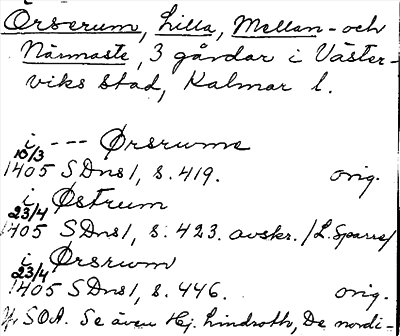 Örserum, Lilla, Mellan- och
Närmaste, 3 gårdar i Väster-
viks stad, Kalmar l.
i --- Ørsrums
10/3
1405 SDns 1, s. 419. orig.
i Østrum
23/4
1405 SDns 1, s. 423. avskr. /L. Sparre/
i Ørsrum
23/4
1405 SDns 1, s. 446. orig.
Jfr SOÄ. Se även Hj. Lindroth, De nordi-